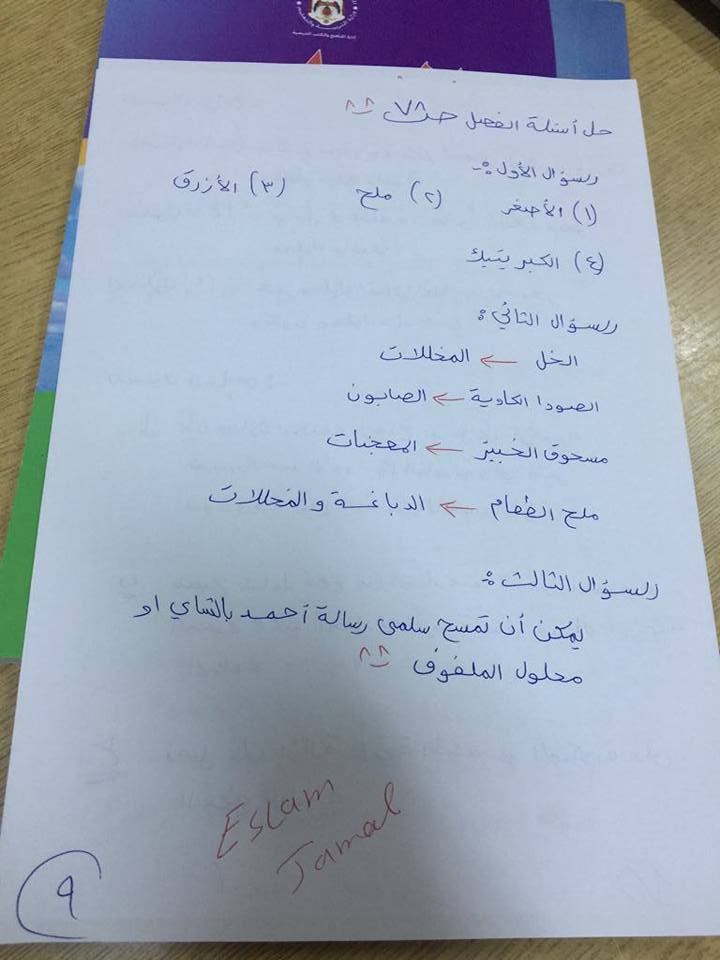 إدارة المناهج والكتب المدرسية
حل أسئلة الفصل صـ ٧٨ ^^
السؤال الأول:-
(١) الأصفر (٢) ملح (٣) الأزرق
(٤) الكبريتيك
السؤال الثاني:
الخل ← المخللات
الصودا الكاوية ← الصابون
مسحوق الخبيز ← المعجنات
ملح الطعام ← الدباغة والمخللات
السؤال الثالث:
يمكن أن تمسح سلمى رسالة أحمد بالشاي او
محلول الملفوف ^^
Eslam
Jamal
٩